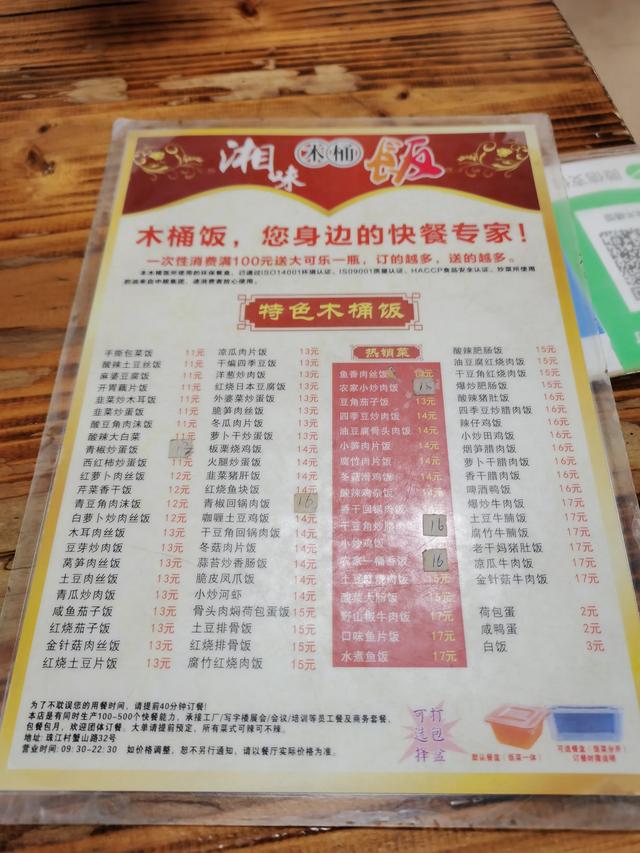 湘味木桶饭
木桶饭，您身边的快餐专家！
一次性消费满100元送大可乐一瓶，订的越多，送的越多。
本木桶饭所使用的环保餐盒，已通过ISO14001环境认证、ISO9001质量认证、HACCP食品安全认证、炒菜所使用
的油来自中粮集团，请消费者放心使用。
特色木桶饭
手撕包菜饭 11元
酸辣土豆丝饭 11元
麻婆豆腐饭 11元
开胃藕片饭 11元
韭菜炒木耳饭 11元
韭菜炒蛋饭 11元
酸豆角肉沫饭 11元
酸辣大白菜 11元
青椒炒蛋饭 12
西红柿炒蛋饭 11元
红萝卜肉丝饭 12元
芹菜香干饭 12元
青豆角肉沫饭 12元
白萝卜炒肉丝饭 12元
木耳肉丝饭 13元
豆芽炒肉饭 13元
莴笋肉丝饭 13元
土豆肉丝饭 13元
青瓜炒肉饭 13元
咸鱼茄子饭 13元
红烧茄子饭 13元
金针菇肉丝饭 13元
红烧土豆片饭 13元
凉瓜肉片饭 13元
干煸四季豆饭 13元
洋葱炒肉饭 13元
红烧日本豆腐饭 13元
外婆菜炒蛋饭 13元
脆笋肉丝饭 13元
冬瓜肉片饭 13元
萝卜干炒蛋饭 13元
板栗烧鸡饭 14元
火腿炒蛋饭 14元
韭菜猪肝饭 14元
红烧鱼块饭 14元
青椒回锅肉饭 16
咖喱土豆鸡饭 14元
干豆角回锅肉饭 14元
冬菇肉片饭 14元
蒜苔炒香肠饭 14元
脆皮凤爪饭 14元
小炒河虾 14元
骨头肉焖荷包蛋饭 15元
土豆排骨饭 15元
红烧排骨饭 15元
腐竹红烧肉饭 15元
热销菜
鱼香肉丝饭 13元
农家小炒肉饭 15
豆角茄子饭 13元
四季豆炒肉饭 14元
油豆腐骨头肉饭 14元
小笋肉片饭 14元
腐竹肉片饭 14元
冬菇滑鸡饭 14元
酸辣鸡杂饭 14元
香干回锅肉饭
干豆角炒腊肉饭 16
小炒鸡饭
农家一桶香饭 16
土豆红烧肉饭 15元
酸菜大肠饭 15元
野山椒牛肉饭 17元
口味鱼片饭 17元
水煮鱼饭 17元
酸辣肥肠饭 15元
油豆腐红烧肉饭 15元
干豆角红烧肉饭 15元
爆炒肥肠饭 15元
酸辣猪肚饭 16元
四季豆炒腊肉饭 16元
辣仔鸡饭 16元
小炒田鸡饭 16元
烟笋腊肉饭 16元
萝卜干腊肉饭 16元
香干腊肉饭 16元
啤酒鸭饭 16元
爆炒牛肉饭 17元
土豆牛腩饭 17元
腐竹牛腩饭 17元
老干妈猪肚饭 17元
凉瓜牛肉饭 17元
金针菇牛肉饭 17元
荷包蛋 2元
咸鸭蛋 2元
白饭 3元
为了不耽误您的用餐时间，请提前40分钟订餐！
本店是有同时生产100-500个快餐能力，承接工厂/写字楼展会/会议/培训等员工餐及商务套餐、
包餐包月，欢迎团体订餐。大单请提前预定，所有菜式可辣可不辣。
地址：珠江村蟹山路32号
营业时间：09:30-22:30 如价格调整，恕不另行通知，请以餐厅实际价格为准。
可打
选包
择盒
默认餐盒（饭菜一体）
可选餐盒（饭菜分开）
订餐时需说明
微信支付